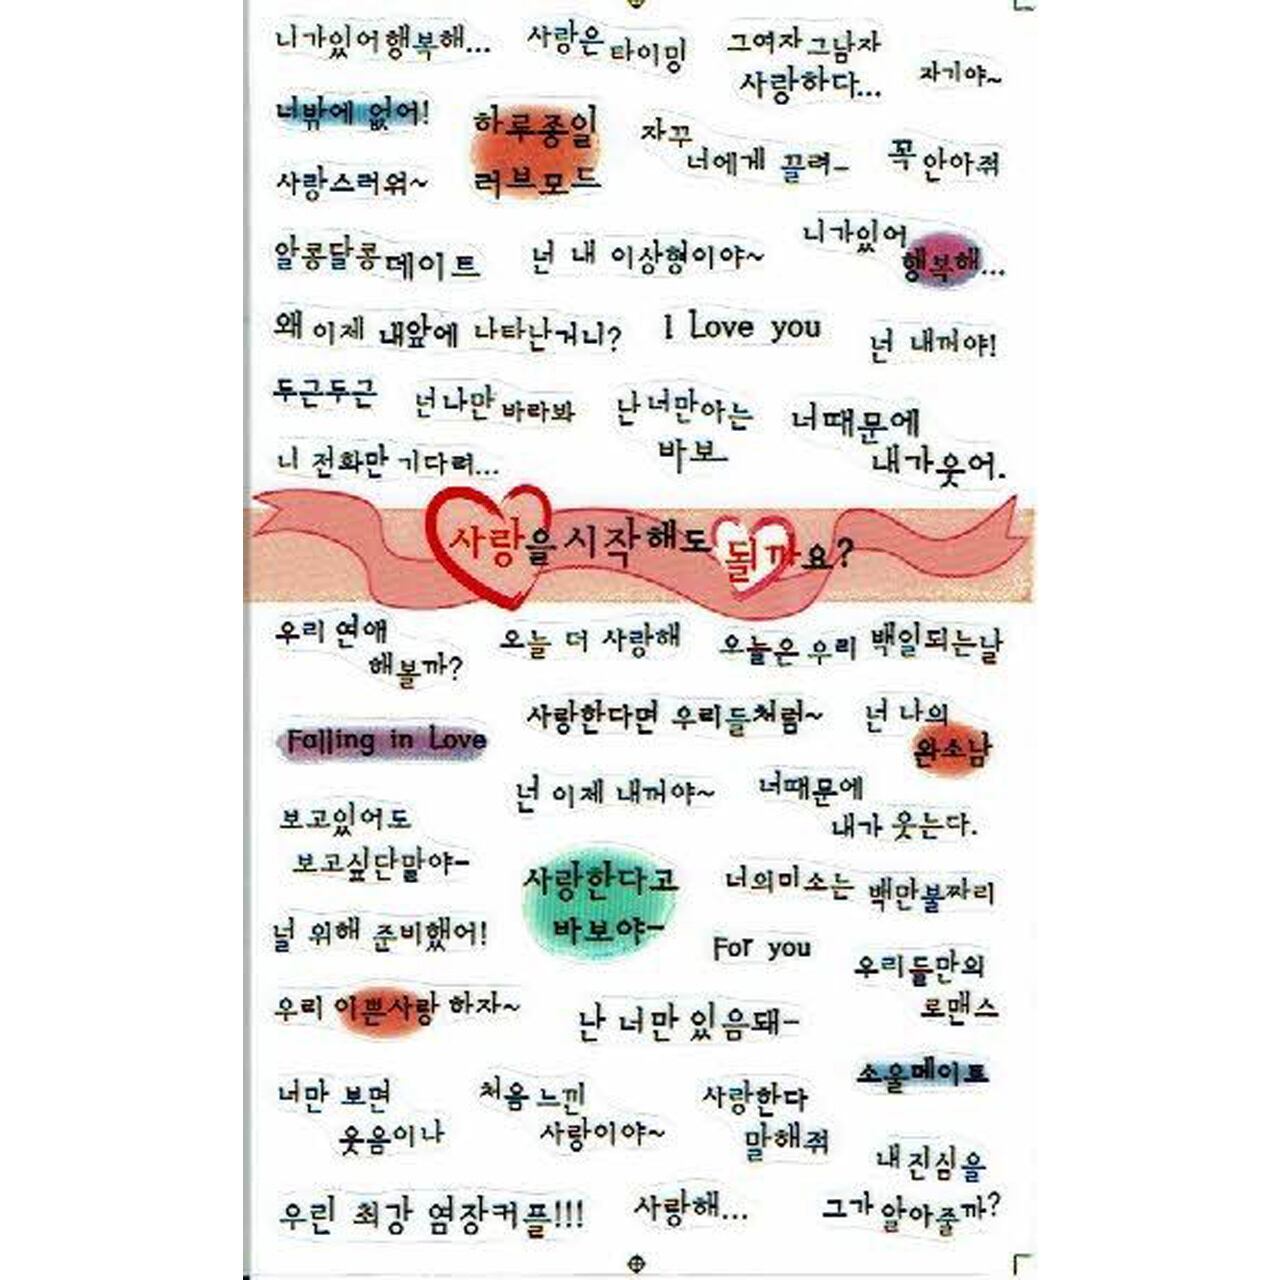 니가있어행복해...
사랑은 타이밍
그여자 그남자
사랑하다...
자기야~
너밖에 없어!
하루종일
러브모드
자꾸
너에게 끌려-
꼭 안아줘
사랑스러워~
알콩달콩데이트
넌 내 이상형이야~
니가있어
행복해...
왜 이제 내앞에 나타난거니?
I Love you
넌 내꺼야!
두근두근
넌나만 바라봐
난 너만아는
바보
너때문에
내가웃어.
니 전화만 기다려...
사랑을 시작해도 될까요?
우리 연애
해볼까?
오늘 더 사랑해
오늘은 우리 백일되는날
Falling in Love
사랑한다면 우리들처럼~
넌 나의
완소남
넌 이제 내꺼야~
너때문에
내가 웃는다.
보고있어도
보고싶단말야-
사랑한다고
바보야-
너의미소는 백만불짜리
널 위해 준비했어!
For you
우리들만의
로맨스
우리 이쁜사랑 하자~
난 너만 있음돼-
소울메이트
너만 보면
웃음이나
처음 느낀
사랑이야~
사랑한다
말해줘
내진심을
그가 알아줄까?
우린 최강 염장커플!!!
사랑해...